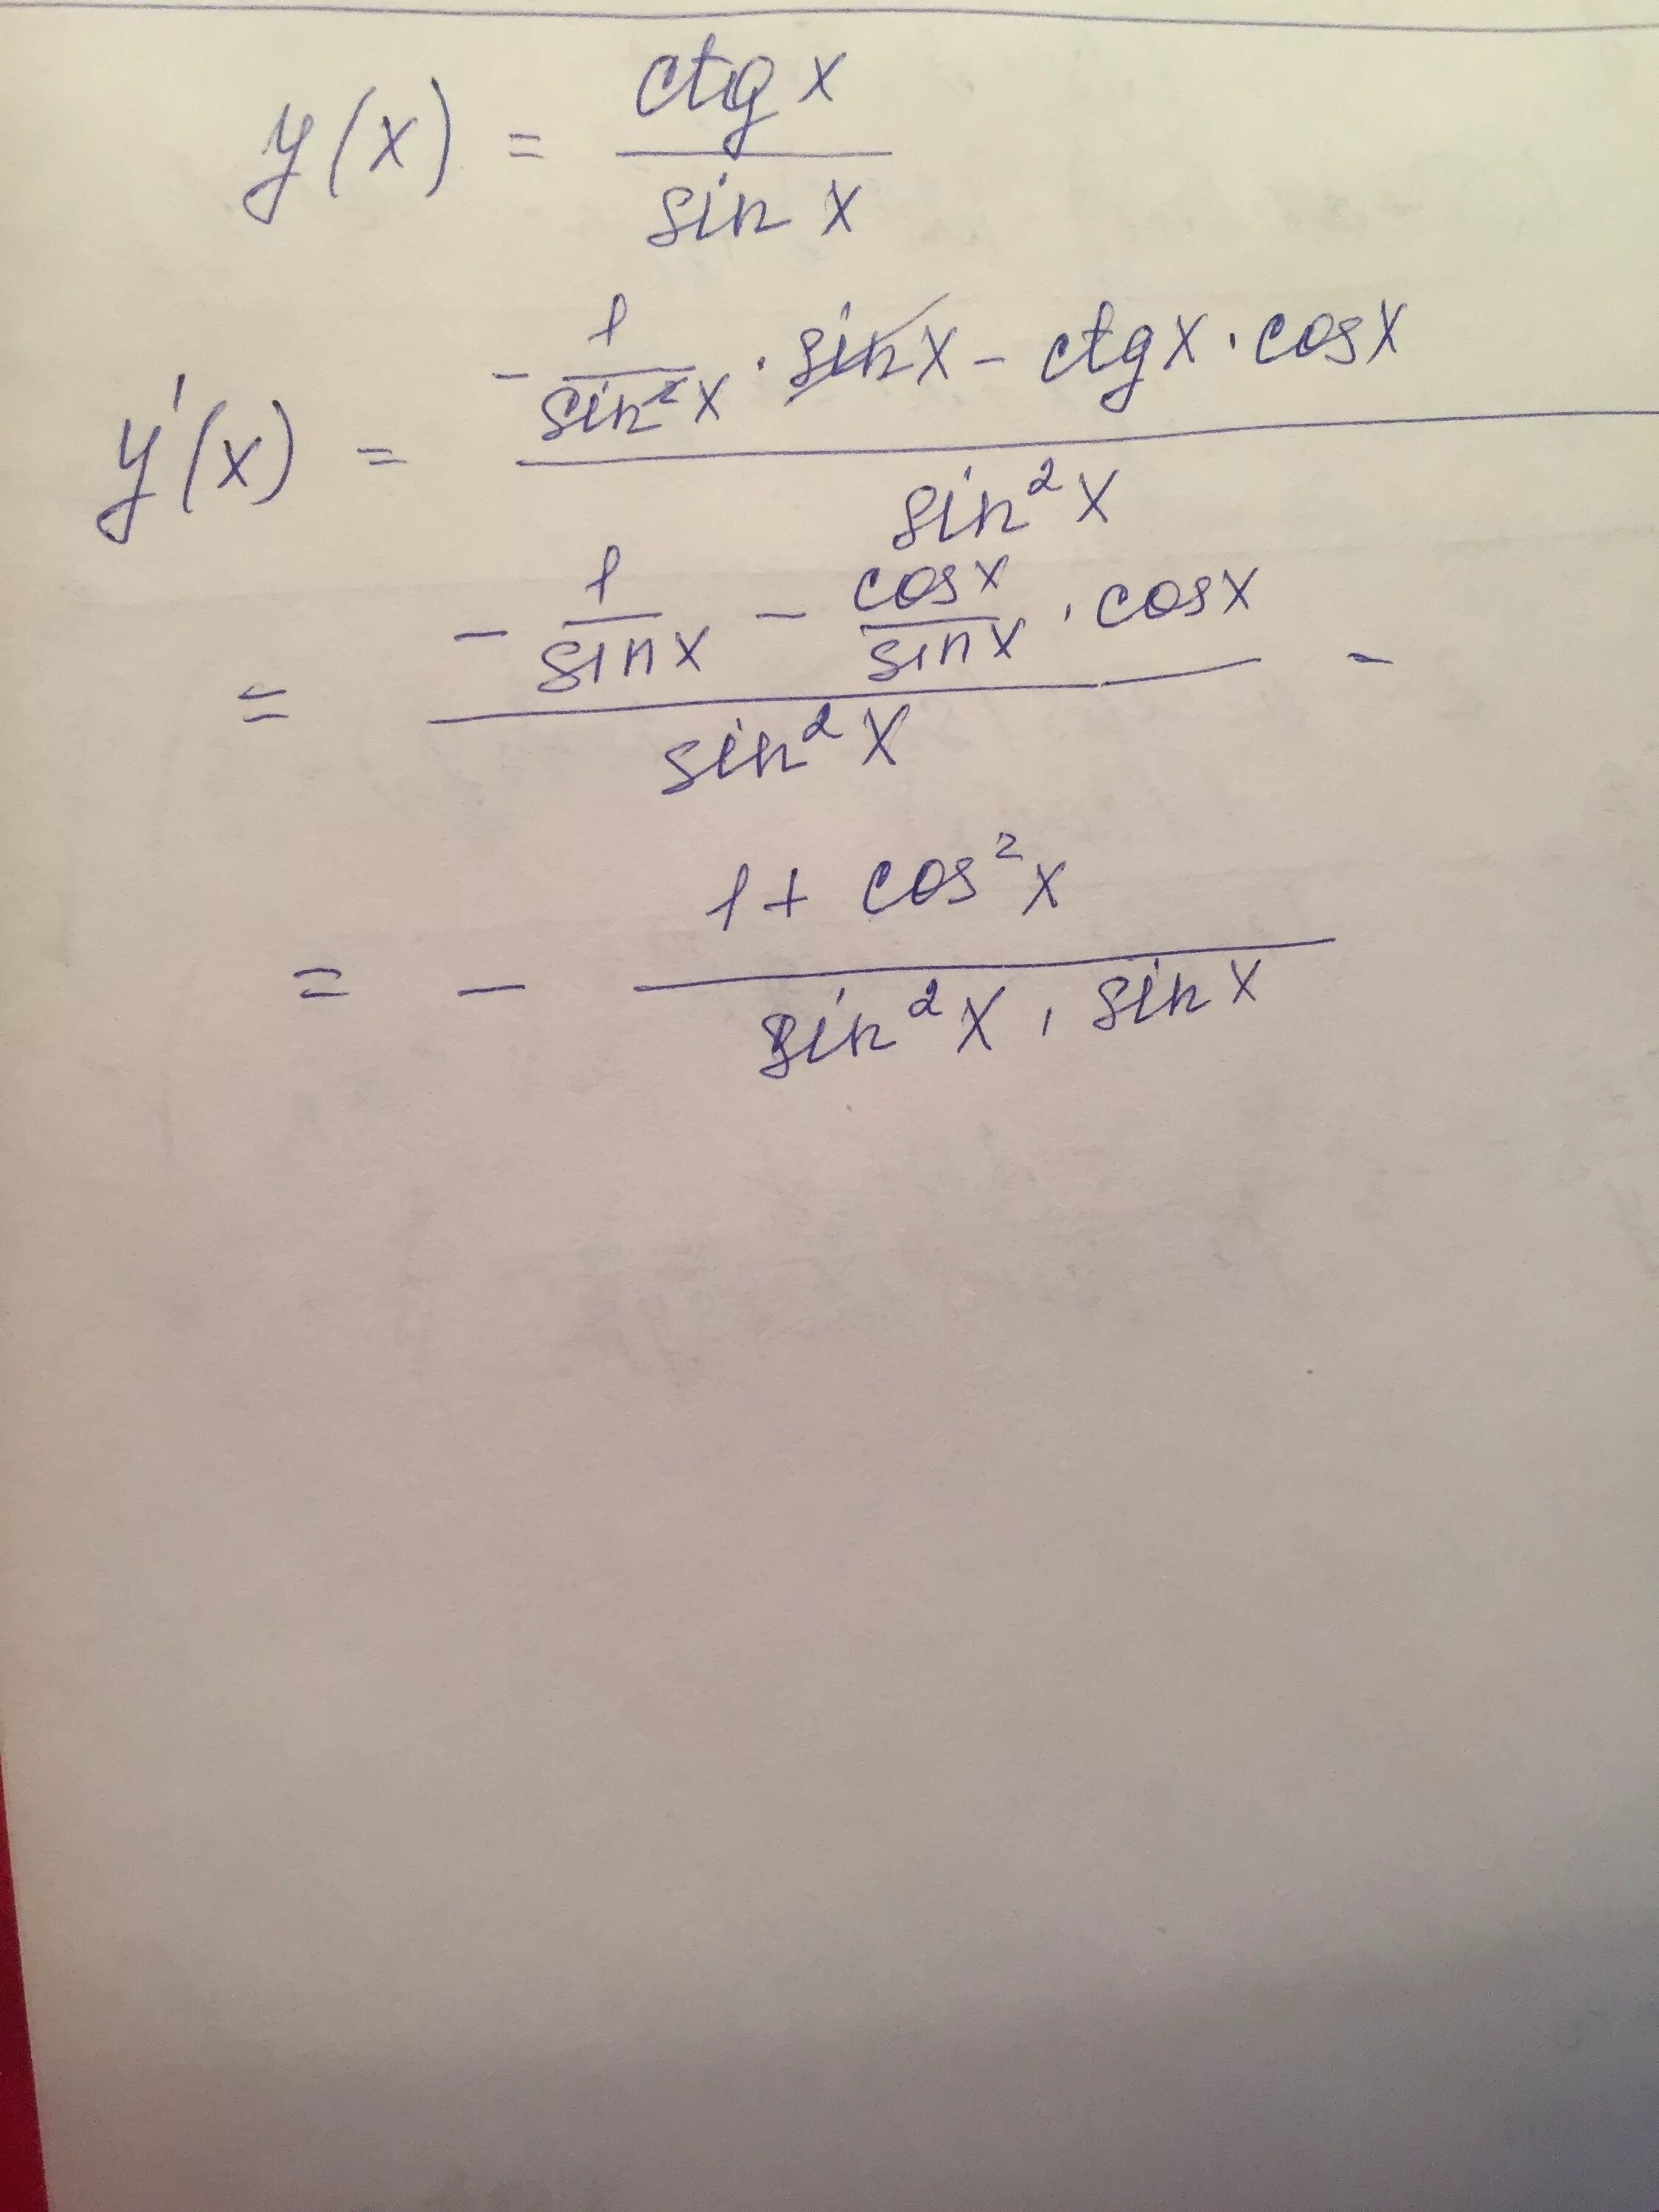 y(x) = ctg x / sin x
y'(x) = (- 1/sin²x · sin x - ctg x · cos x) / sin²x
= (- 1/sin x - cos x/sin x · cos x) / sin²x -
= - (1 + cos²x) / (sin²x · sin x)